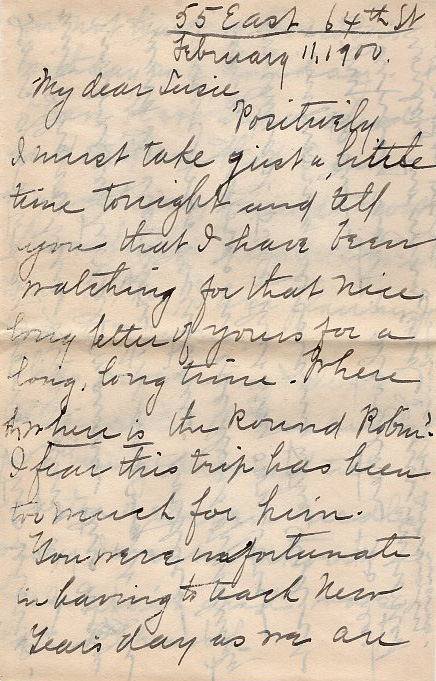 55 East 64th St
February 11, 1900.
My dear Susie
Positively
I must take just a little
time tonight and tell
you that I have been
watching for that nice
long letter of yours for a
long, long time. Where
where is the Round Robin?
I fear this trip has been
too much for him.
You were unfortunate
in having to teach New
Years day as we are